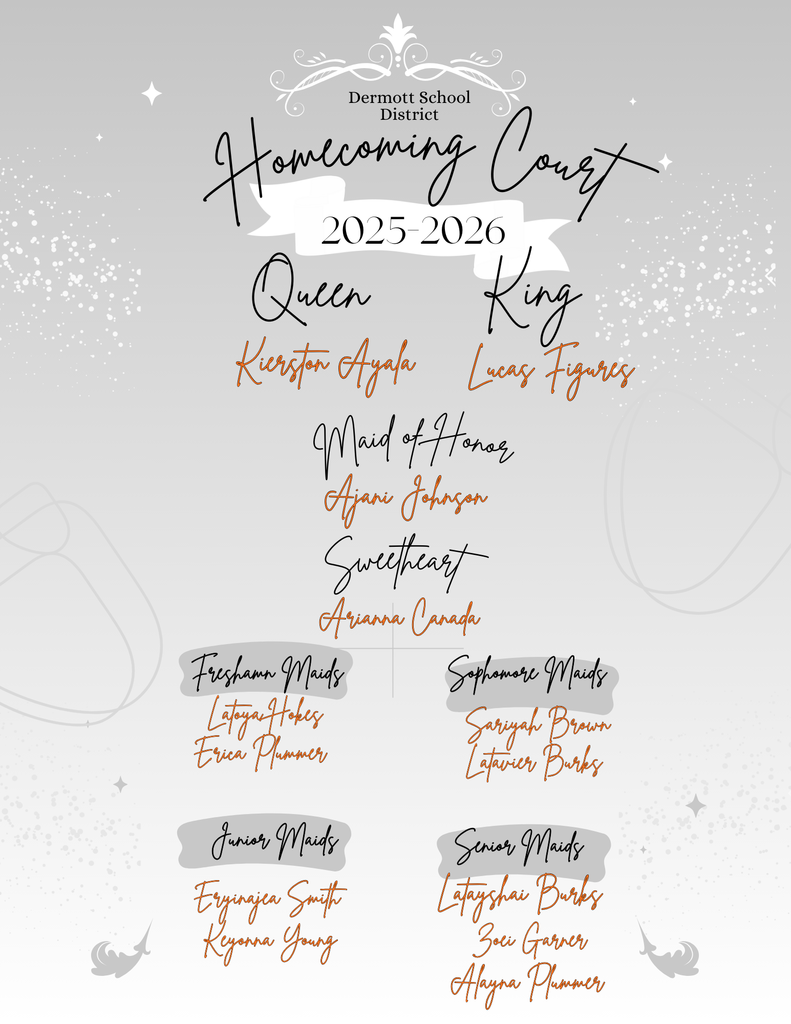 Dermott School
District
Homecoming Court
2025-2026
Queen
King
Kierston Ayala
Lucas Figures
Maid of Honor
Ajani Johnson
Sweetheart
Arianna Canada
Freshamn Maids
Latoya Hokes
Erica Plummer
Sophomore Maids
Sariyah Brown
Latavier Burks
Junior Maids
Eryinajea Smith
Keyonna Young
Senior Maids
Latayshai Burks
Zoei Garner
Alayna Plummer